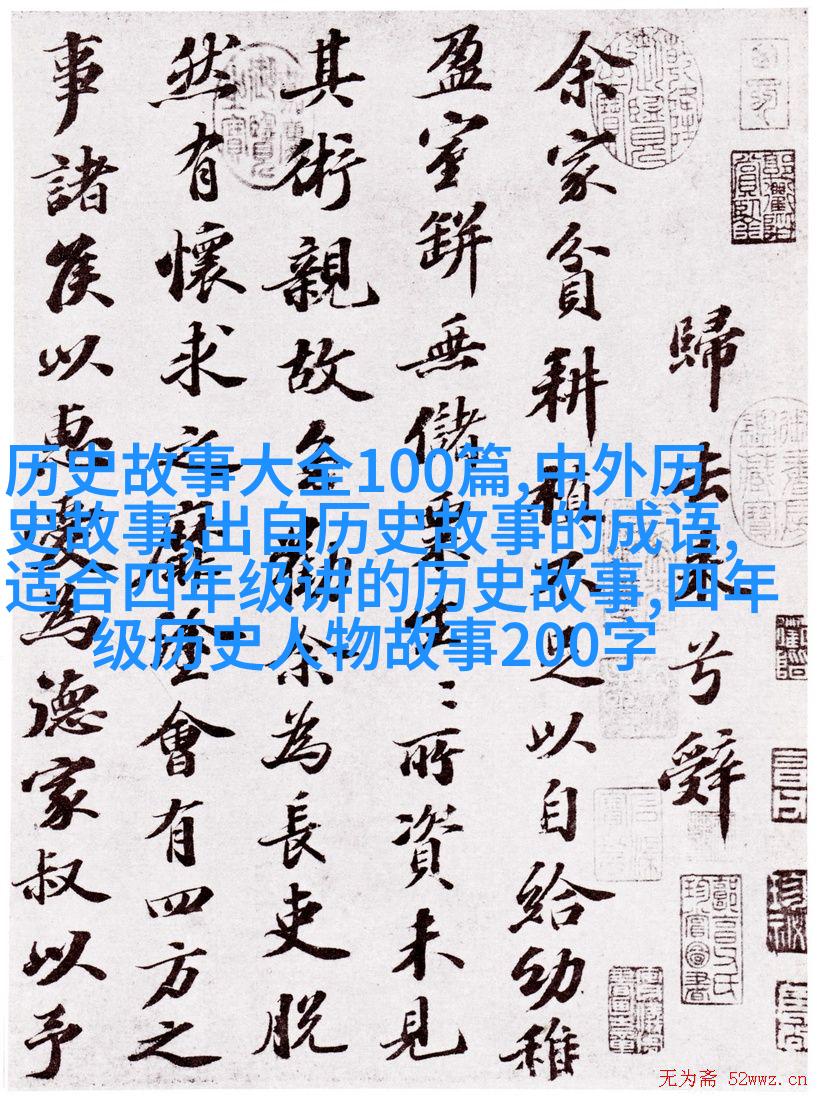 歸去来兮辭
余家貧耕植不足以自給幼稚
盈室缾無儲粟生〻所資未見
其術親故多勸余為長吏脱
然有懷求之靡途會有四方之
事諸侯以惠愛為德家叔以予
历史故事大全100篇,中外历
史故事,出自历史故事的成语,
适合四年级讲的历史故事,四年
级历史人物故事200字
无为斋 52wwz.cn